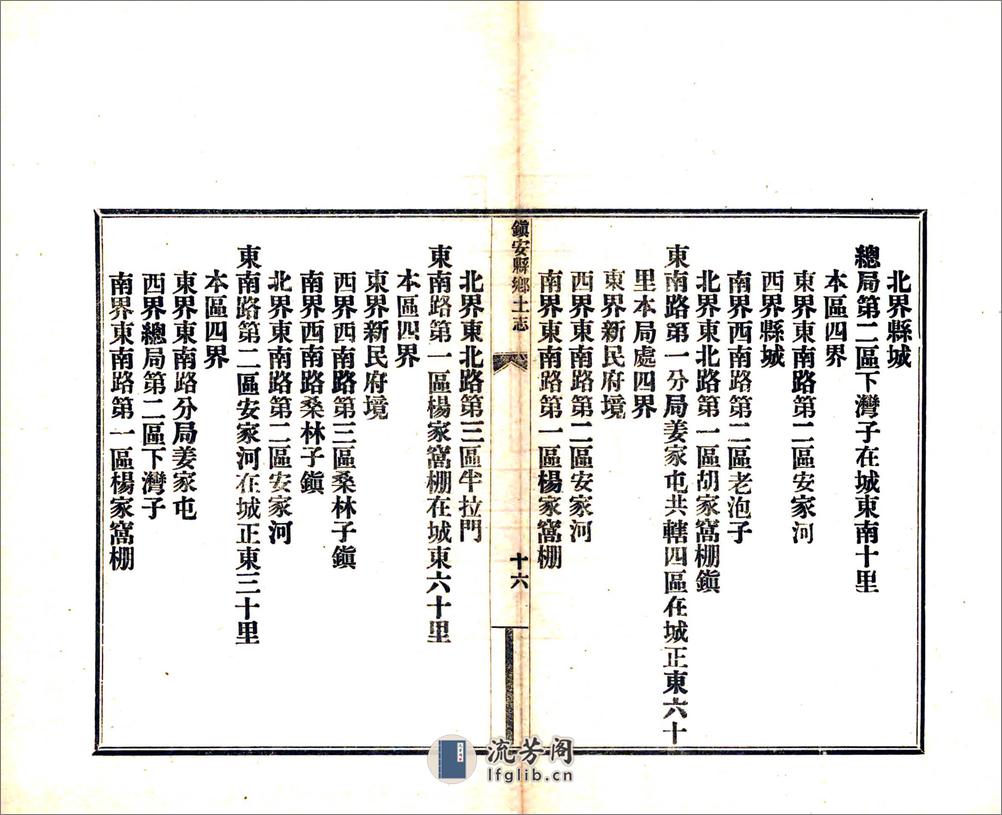 北界縣城
總局第二區下灣子在城東南十里
本區四界
東界東南路第二區安家河
西界縣城
南界西南路第二區老泡子
北界東北路第一區胡家窩棚鎭
東南路第一分局姜家屯共轄四區在城正東六十
里本局處四界
東界新民府境
西界東南路第二區安家河
南界東南路第一區楊家窩棚
鎭安縣鄉土志
十六
北界東北路第三區半拉門
東南路第一區楊家窩棚在城東六十里
本區四界
東界新民府境
西界西南路第三區桑林子鎭
南界西南路桑林子鎭
北界東南路第二區安家河
東南路第二區安家河在城正東三十里
本區四界
東界東南路分局姜家屯
西界總局第二區下灣子
南界東南路第一區楊家窩棚
流芳阁
lfglib.cn